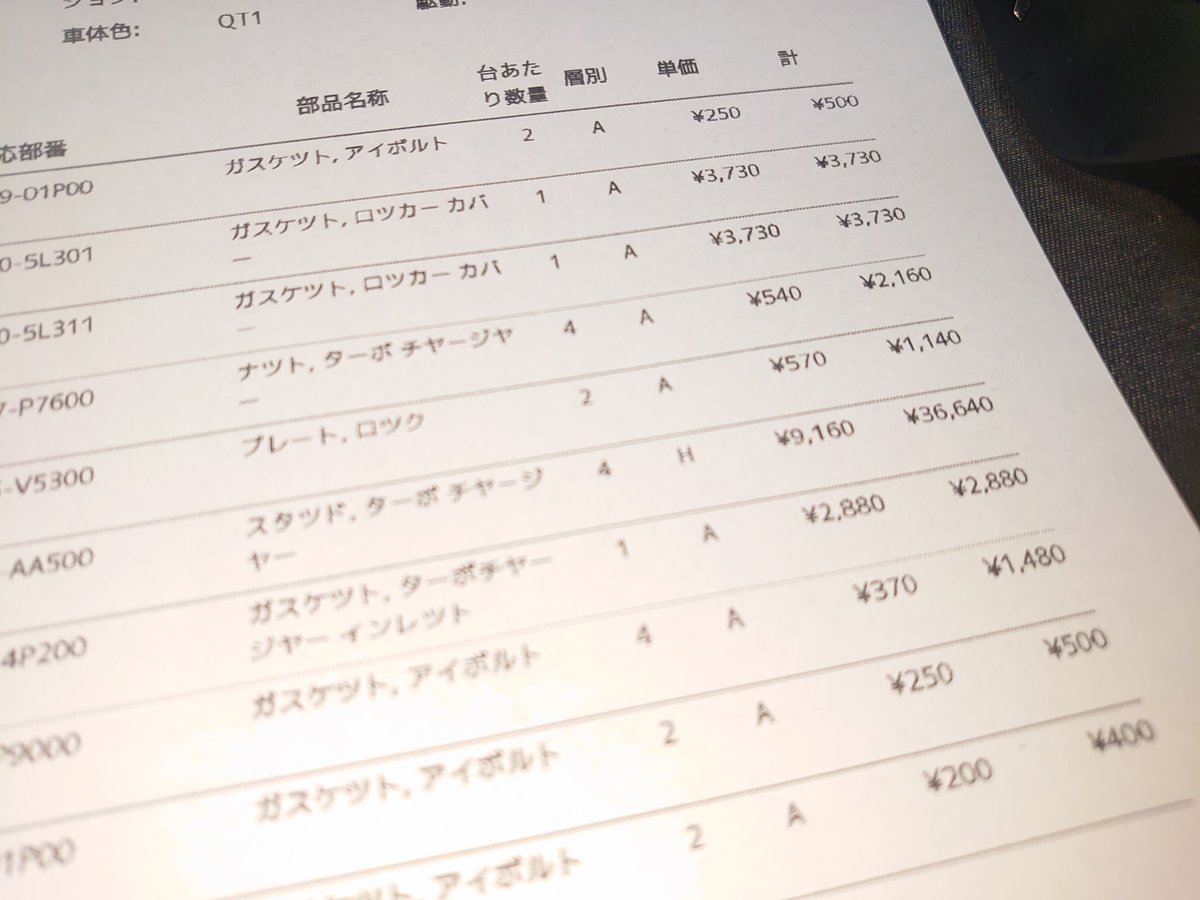 車体色: QT1
応部番 部品名称 台あた 層別 単価 計
り数量
9-01P00 ガスケツト, アイボルト 2 A ¥250 ¥500
0-5L301 ガスケツト, ロツカー カバ 1 A ¥3,730 ¥3,730
ー
0-5L311 ガスケツト, ロツカー カバ 1 A ¥3,730 ¥3,730
ー
7-P7600 ナツト, ターボ チヤージヤ 4 A ¥540 ¥2,160
ー
-V5300 プレート, ロツク 2 A ¥570 ¥1,140
-AA500 スタツド, ターボ チヤージ 4 H ¥9,160 ¥36,640
ヤー
4P200 ガスケツト, ターボチヤー 1 A ¥2,880 ¥2,880
ジヤー インレツト
P9000 ガスケツト, アイボルト 4 A ¥370 ¥1,480
1P00 ガスケツト, アイボルト 2 A ¥250 ¥500
ガスケツト, アイボルト 2 A ¥200 ¥400